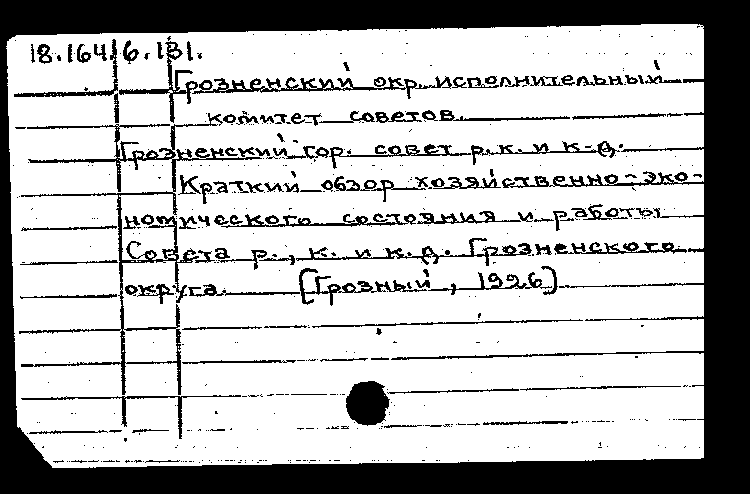 18.164/6.131.
Грозненский окр. исполнительный
комитет советов.
Грозненский гор. совет р.к. и к-д.
Краткий обзор хозяйственно-эко-
номического состояния и работы
Совета р., к. и к.д. Грозненского
округа. [Грозный, 1926]